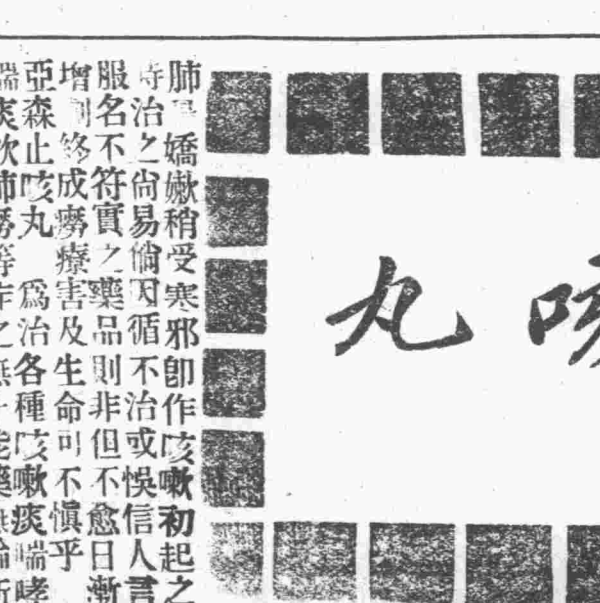 咳丸
肺 嬌嫩稍受寒邪卽作咳嗽初起之
時治之尙易倘因循不治或悞信人言
服名不符實之藥品則非但不愈日漸
增劇終成癆瘵害及生命可不愼乎
亞森止咳丸 爲治各種咳嗽痰喘哮
喘痰飲肺癆等症之無上 藥無論新